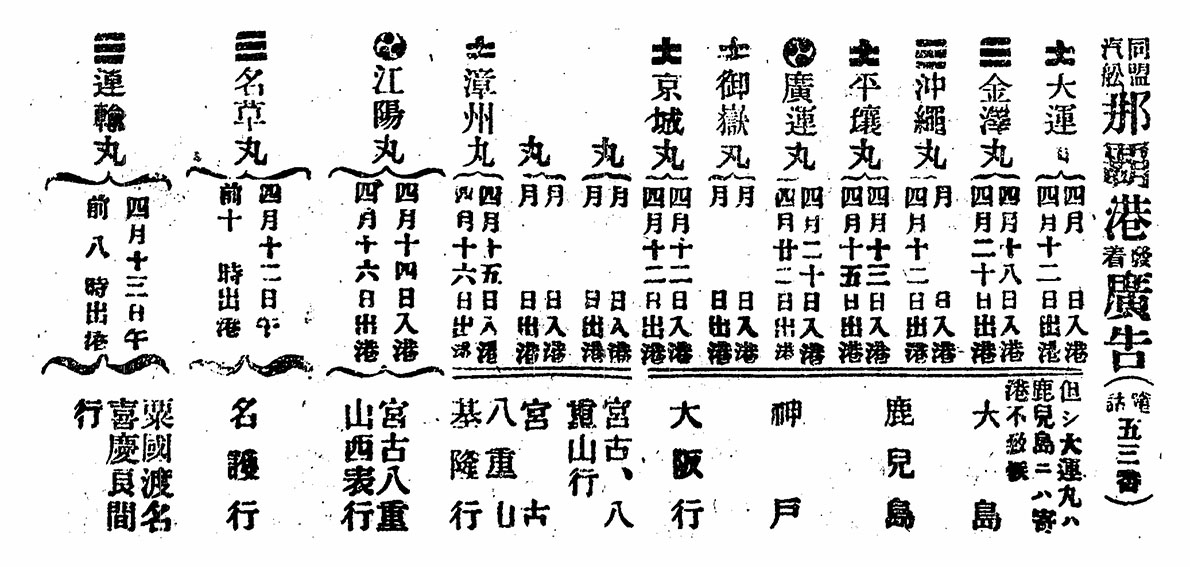 同盟汽舩 那覇港 發着 廣告 (電話 五三番)
大運丸 四月 日入港 四月十二日出港
金澤丸 四月十八日入港 四月二十日出港
沖繩丸 月 日入港 四月十二日出港
平壤丸 四月十三日入港 四月十五日出港
廣運丸 四月二十日入港 四月廿二日出港
御嶽丸 月 日入港 月 日出港
京城丸 四月十二日入港 四月十二日出港
但シ大運丸ハ鹿兒島ニハ寄港不致候
大島 鹿兒島 神戸 大阪行
丸 月 日入港 月 日出港
丸 月 日入港 月 日出港
漳州丸 四月十五日入港 四月十六日出港
宮古、八重山行
宮古 八重山 基隆行
江陽丸 四月十四日入港 四月十六日出港
宮古八重山西表行
名草丸 四月十二日午前十 時出港
名護行
運輸丸 四月十三日午前八時出港
粟國渡名喜慶良間行